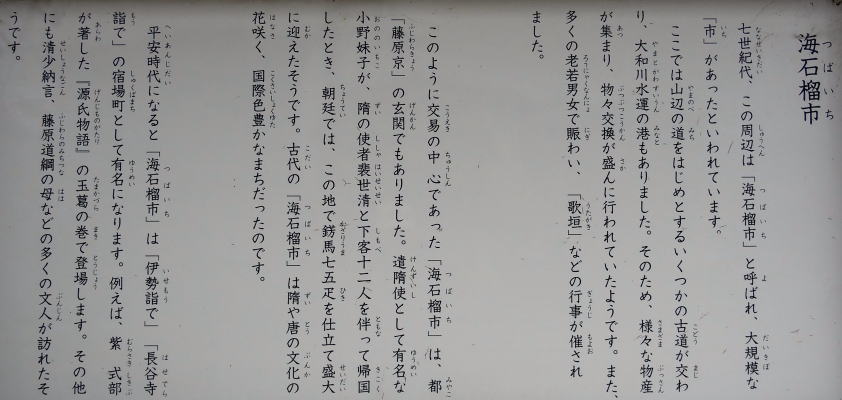 海石榴市
七世紀代、この周辺は「海石榴市」と呼ばれ、大規模な
「市」があったといわれています。
ここでは山辺の道をはじめとするいくつかの古道が交わ
り、大和川水運の港もありました。そのため、様々な物産
が集まり、物々交換が盛んに行われていたようです。また、
多くの老若男女で賑わい、「歌垣」などの行事が催され
ました。
このように交易の中心であった「海石榴市」は、都
「藤原京」の玄関でもありました。遣隋使として有名な
小野妹子が、隋の使者裴世清と下客十二人を伴って帰国
したとき、朝廷では、この地で錺馬七五疋を仕立て盛大
に迎えたそうです。古代の「海石榴市」は隋や唐の文化の
花咲く、国際色豊かなまちだったのです。
平安時代になると「海石榴市」は「伊勢詣で」「長谷寺
詣で」の宿場町として有名になります。例えば、紫 式部
が著した『源氏物語』の玉葛の巻で登場します。その他
にも清少納言、藤原道綱の母などの多くの文人が訪れたそ
うです。